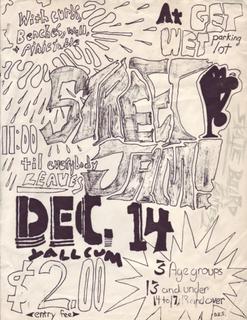 With curb,
Benches, wall, +
Picnic Table
At GET
WET parking
lot
STREET
JAM!
11:00
'til everybody
LEAVES
DEC. 14
YALLCUM
$2.00
entry fee
3 Age groups
13 and under
14 to 17, 18 and over